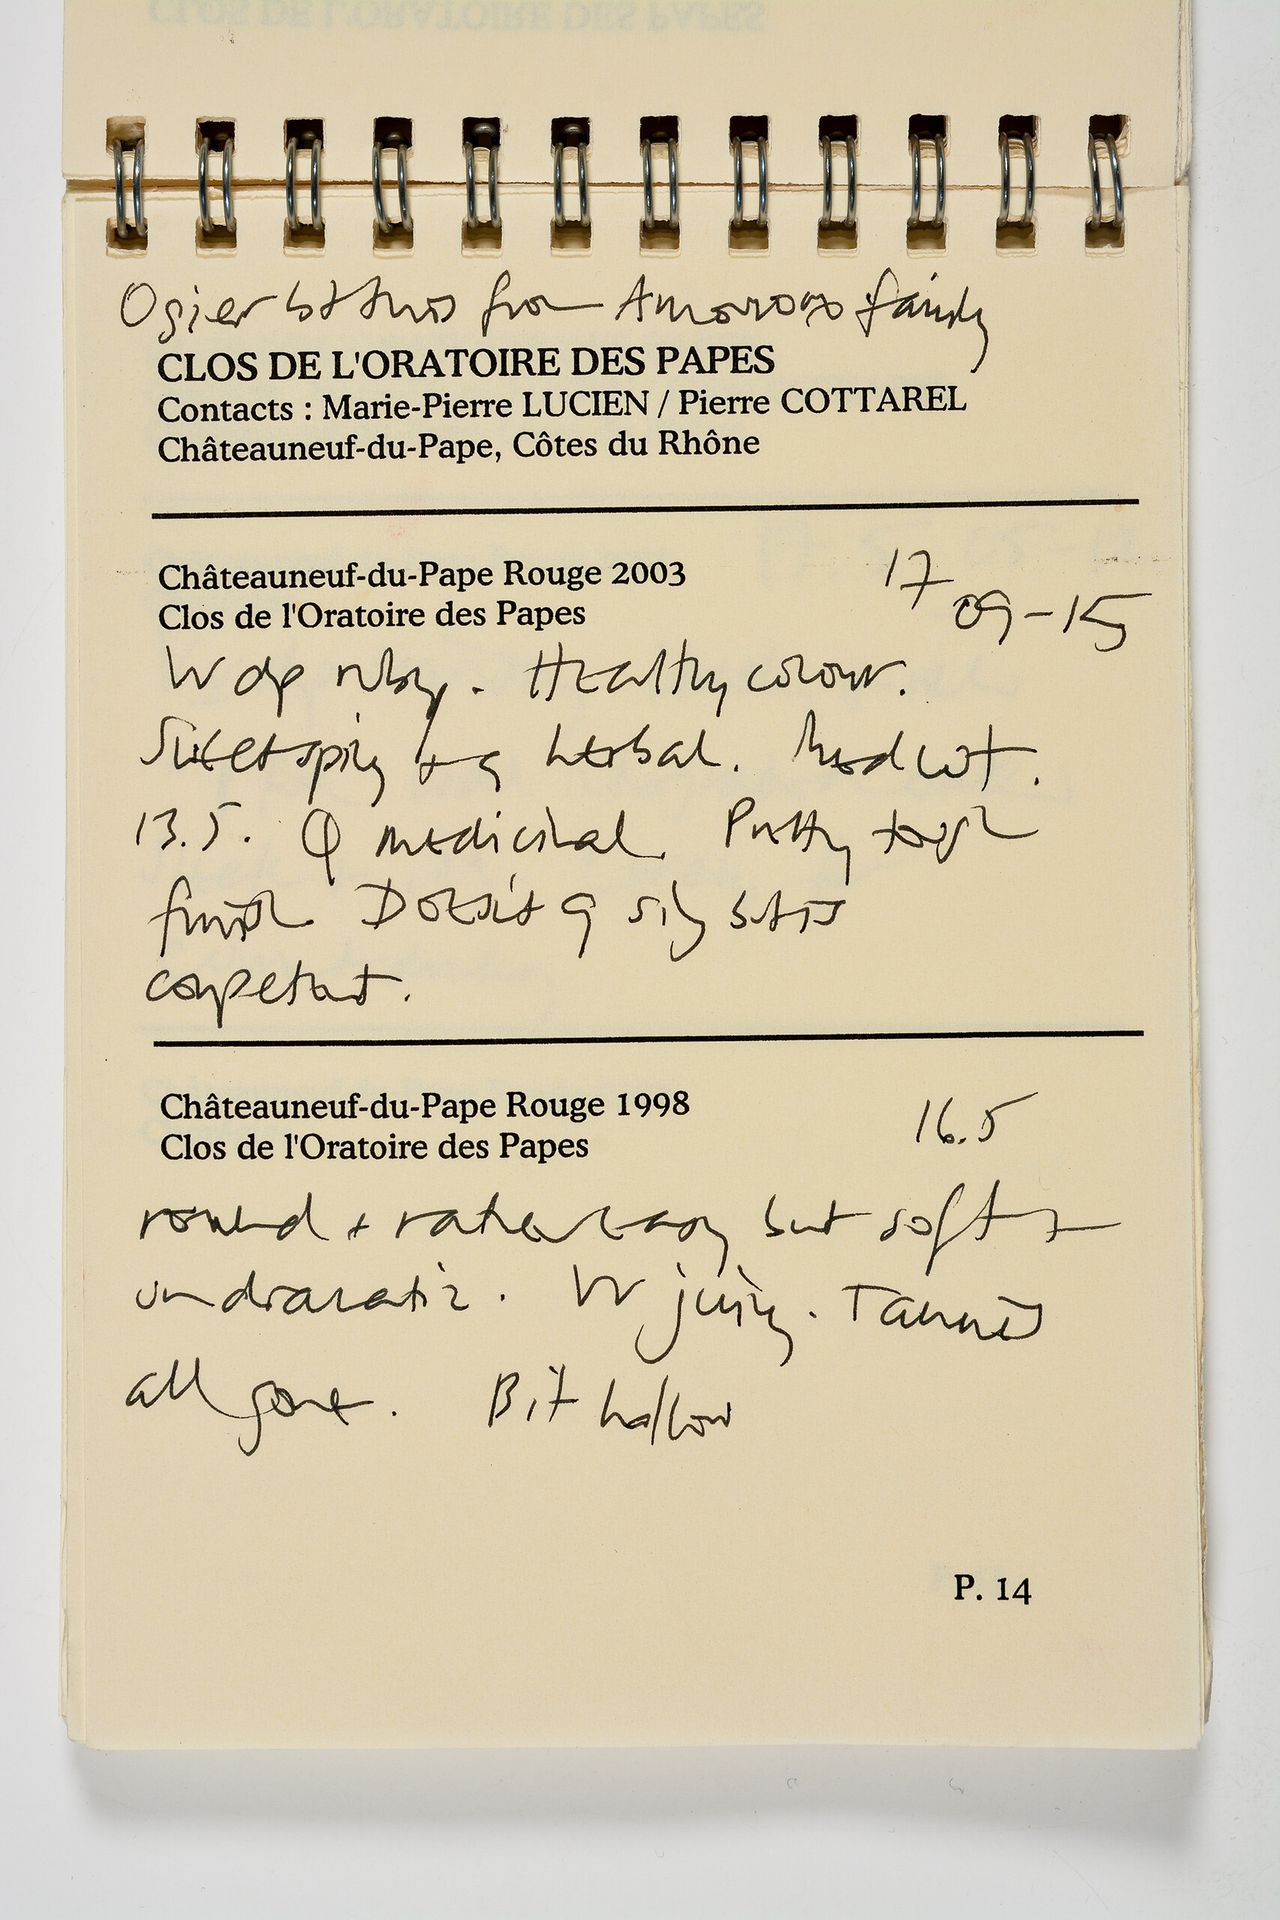 Ogier bt this from Amouroux family
CLOS DE L'ORATOIRE DES PAPES
Contacts : Marie-Pierre LUCIEN / Pierre COTTAREL
Châteauneuf-du-Pape, Côtes du Rhône
Châteauneuf-du-Pape Rouge 2003
17
Clos de l'Oratoire des Papes
09-15
V dp ruby. Healthy colour.
Sweet spicy + q herbal. Med wt.
13.5. Q medicinal. Pretty tough
finish Doesn't q sing but is
competent.
Châteauneuf-du-Pape Rouge 1998
16.5
Clos de l'Oratoire des Papes
round + rather easy but soft +
undramatic. VV juicy. Tannins
all gone. Bit hollow
P. 14